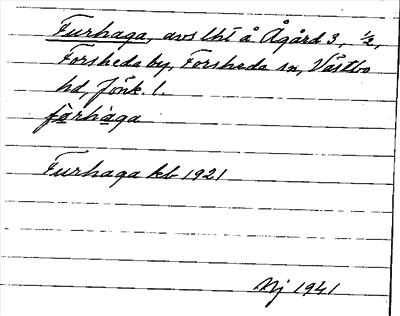 Furhaga, avs lht å Ågård 3, 1/2,
Forsheda by, Forsheda sn, Västbo
hd, Jönk. l.
fo̱rha̱ga
Furhaga kb 1921
Nj 1941